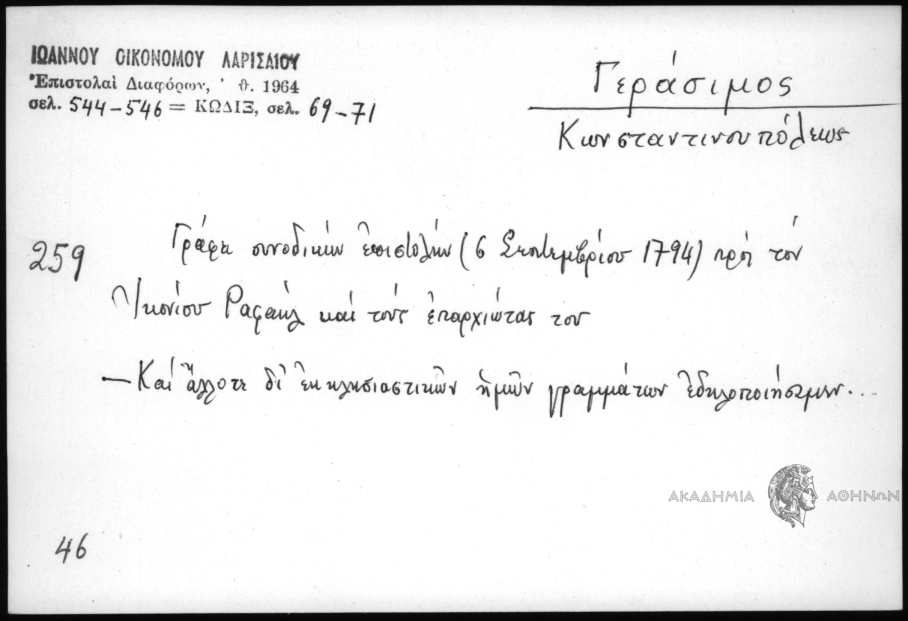 ΙΩΑΝΝΟΥ ΟΙΚΟΝΟΜΟΥ ΛΑΡΙΣΑΙΟΥ
Ἐπιστολαὶ Διαφόρων, ϑ. 1964
σελ. 544-546 = ΚΩΔΙΞ, σελ. 69-71
Γεράσιμος
Κωνσταντινουπόλεως
259 Γράφει συνοδικὴν ἐπιστολὴν (6 Σεπτεμβρίου 1794) πρὸς τὸν
Ἰκονίου Ραφαὴλ καὶ τοὺς ἐπαρχιώτας του
— Καὶ ἄλλοτε δι' ἐκκλησιαστικῶν ἡμῶν γραμμάτων ἐδηλοποιήσαμεν...
ΑΚΑΔΗΜΙΑ ΑΘΗΝΩΝ
46